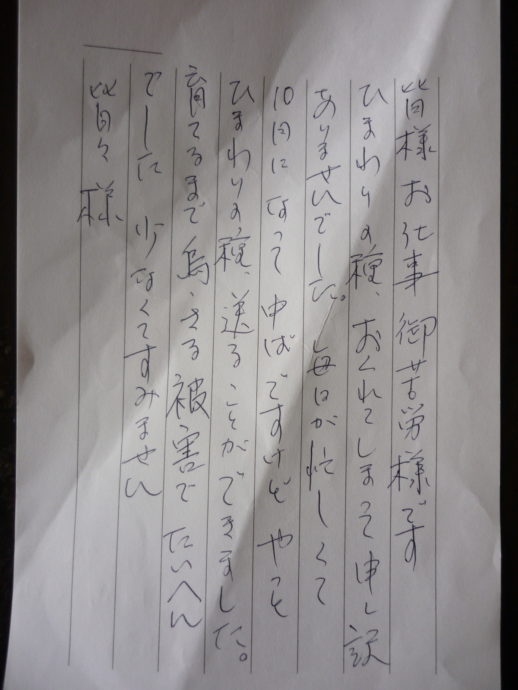 皆様お仕事御苦労様です
ひまわりの種、おくれてしまって申し訳
ありませんでした。毎日が忙しくて
10月になって中ばですけど やっと
ひまわりの種、送ることができました。
育てるまで鳥、さる被害でたいへん
でした 少なくてすみません
皆々様